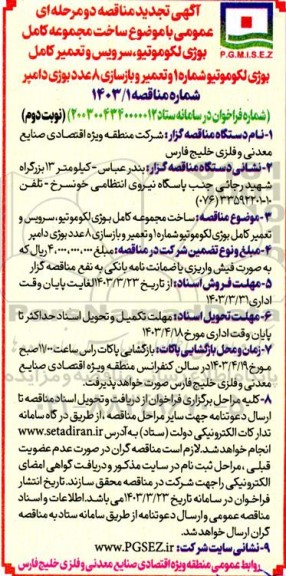 آگهی تجدید مناقصه دو مرحله ای
عمومی با موضوع ساخت مجموعه کامل
بوژی لکوموتیو، سرویس و تعمیر کامل
P.G.M.I.S.E.Z
بوژی لکوموتیو شماره ۱ و تعمیر و بازسازی ۸ عدد بوژی دامپر
شماره مناقصه ۱۴۰۳/۱
(شماره فراخوان در سامانه ستاد ۲۰۰۳۰۰۴۳۴۰۰۰۰۰۱۲) (نوبت دوم)
۱- نام دستگاه مناقصه گزار: شرکت منطقه ویژه اقتصادی صنایع
معدنی و فلزی خلیج فارس
۲- نشانی دستگاه مناقصه گزار: بندرعباس - کیلومتر ۱۳ بزرگراه
شهید رجائی جنب پاسگاه نیروی انتظامی خونسرخ - تلفن
(۰۷۶)
۳- موضوع مناقصه: ساخت مجموعه کامل بوژی لکوموتیو، سرویس و
تعمیر کامل بوژی لکوموتیو شماره ۱ و تعمیر و بازسازی ۸ عدد بوژی دامپر
۴- مبلغ و نوع تضمین شرکت در مناقصه: مبلغ ۴,۰۰۰,۰۰۰,۰۰۰ ریال که
به صورت فیش واریزی یا ضمانت نامه بانکی به نفع مناقصه گزار
۵- مهلت فروش اسناد: از تاریخ ۱۴۰۳/۳/۲۳ لغایت پایان وقت
اداری ۱۴۰۳/۳/۳۱
۶- مهلت تحویل اسناد: مهلت تکمیل و تحویل اسناد حداکثر تا
پایان وقت اداری مورخ ۱۴۰۳/۴/۱۸
۷- زمان و محل بازگشایی پاکات: بازگشایی پاکات راس ساعت ۱۱:۰۰ صبح
مورخ ۱۴۰۳/۴/۱۹ در سالن کنفرانس منطقه ویژه اقتصادی صنایع
معدنی و فلزی خلیج فارس صورت خواهد پذیرفت.
۸- کلیه مراحل برگزاری فراخوان از دریافت و تحویل اسناد مناقصه تا
ارسال دعوتنامه جهت سایر مراحل مناقصه، از طریق درگاه سامانه
تدارکات الکترونیکی دولت (ستاد) به آدرس www.setadiran.ir
انجام خواهد شد. لازم است مناقصه گران در صورت عدم عضویت
قبلی، مراحل ثبت نام در سایت مذکور و دریافت گواهی امضای
الکترونیکی را جهت شرکت در مناقصه محقق سازند. تاریخ انتشار
فراخوان در سامانه تاریخ ۱۴۰۳/۳/۲۳ می باشد. اطلاعات و اسناد
مناقصه عمومی و ارسال دعوتنامه از طریق سامانه ستاد به مناقصه
گران ارسال خواهد شد.
۹- نشانی سایت شرکت: www.PGSEZ.ir
روابط عمومی منطقه ویژه اقتصادی صنایع معدنی و فلزی خلیج فارس